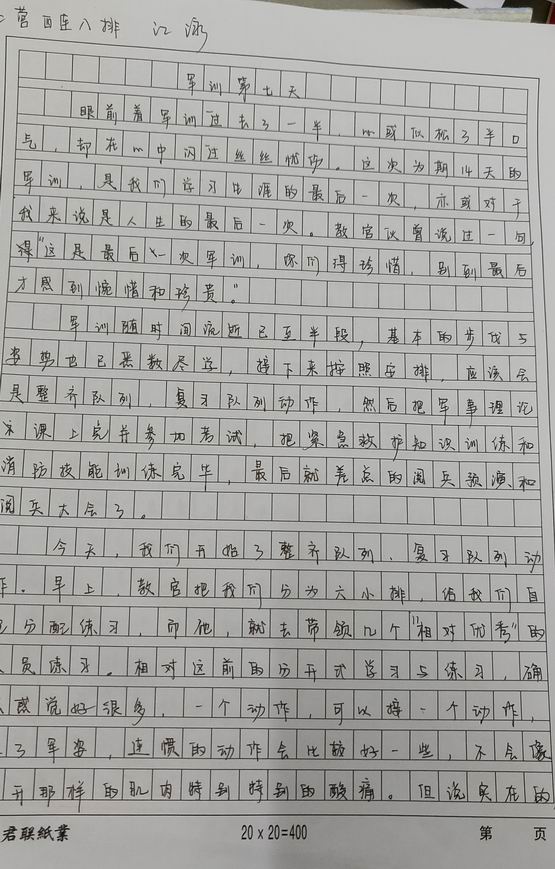 营四连八排 江泳
军训第七天
眼前着军训过去了一半,心或似松了半口
气,却在心中闪过丝丝忧愁。这次为期14天的
军训,是我们学习生涯的最后一次,亦或对于
我来说是人生的最后一次。教官也曾说过一句,
"这是最后一次军训,你们得珍惜,别到最后
才感到惋惜和珍贵。"
军训随时间流逝已至半段,基本的步伐与
姿势也已悉数尽学,接下来按照安排,应该会
是整齐队列,复习队列动作,然后把军事理论
课上完并参加考试,把紧急救护知识训练和
消防技能训练完毕,最后就差点的阅兵预演和
阅兵大会了。
今天,我们开始了整齐队列、复习队列动
作。早上,教官把我们分为六小排,给我们自
己分配练习,而他,就去带领几个"相对优秀"的
人员练习。相对这前的分开式学习与练习,确
感说好很多,一个动作,可以接一个动作,
了军姿,连惯的动作会比较好一些,不会像
开那样的肌肉特别特别的酸痛。但说实在的
君联纸業 20×20=400 第 页